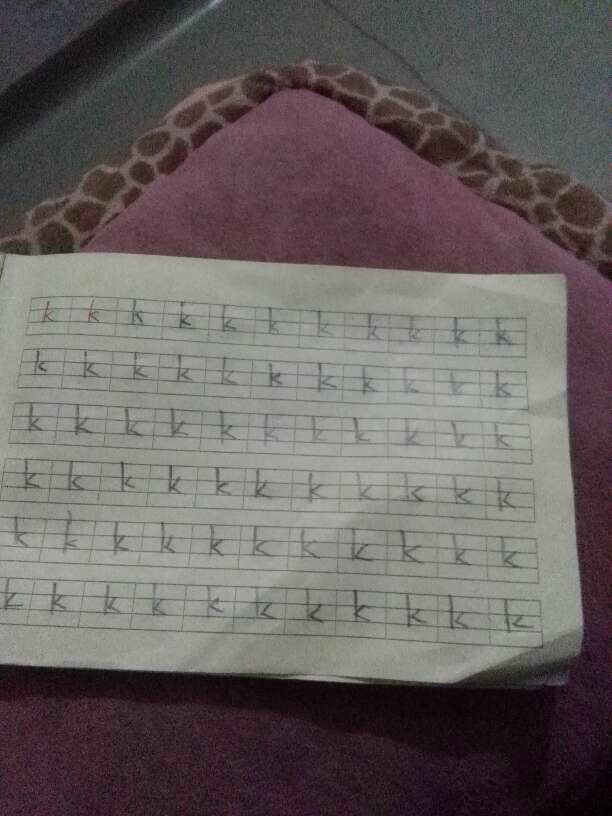 k k k k k k k k k k k
k k k k k k k k k k k
k k k k k k k k k k k
k k k k k k k k k k k
k k k k k k k k k k k
k k k k k k k k k k k